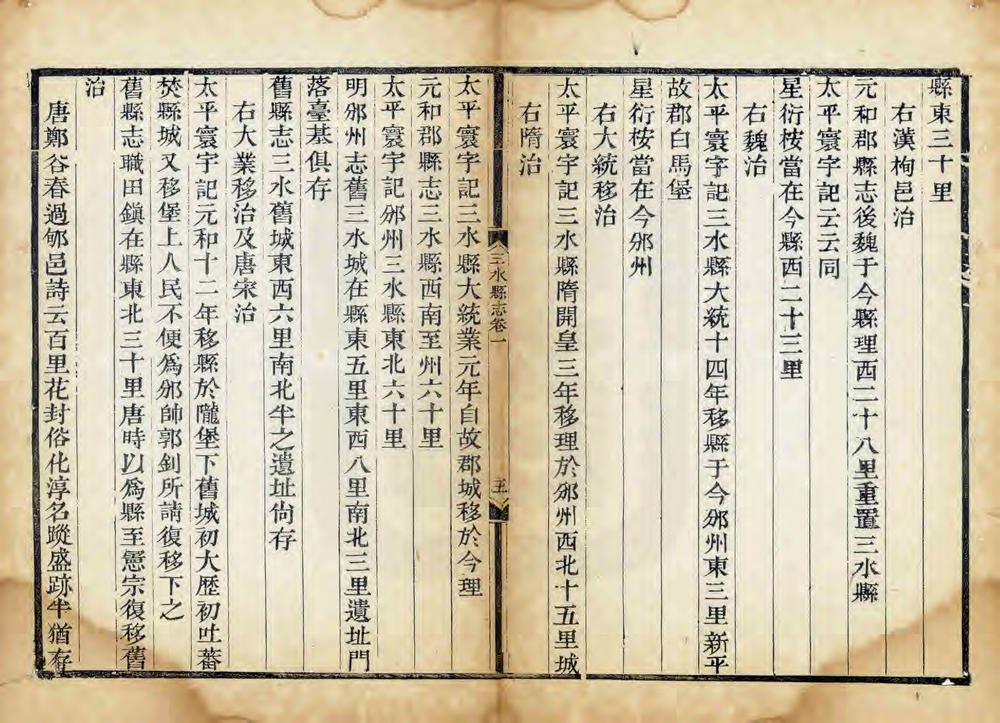 縣東三十里
右漢栒邑治
元和郡縣志後魏于今縣理西二十八里重置三水縣
太平寰宇記云云同
星衍桉當在今縣西二十三里
右魏治
太平寰宇記三水縣大統十四年移縣于今邠州東三里新平
故郡白馬堡
星衍桉當在今邠州
右大統移治
太平寰宇記三水縣隋開皇三年移理於邠州西北十五里城
右隋治
三水縣志卷一
五
太平寰宇記三水縣大統業元年自故郡城移於今理
元和郡縣志三水縣西南至州六十里
太平寰宇記邠州三水縣東北六十里
明邠州志舊三水城在縣東五里東西八里南北三里遺址門
落臺基俱存
舊縣志三水舊城東西六里南北半之遺址尙存
右大業移治及唐宋治
太平寰宇記元和十二年移縣於隴堡下舊城初大歷初吐蕃
焚縣城又移堡上人民不便爲邠帥郭釗所請復移下之
舊縣志職田鎭在縣東北三十里唐時以爲縣至憲宗復移舊
治
唐鄭谷春過郇邑詩云百里花封俗化淳名蹤盛跡半猶存